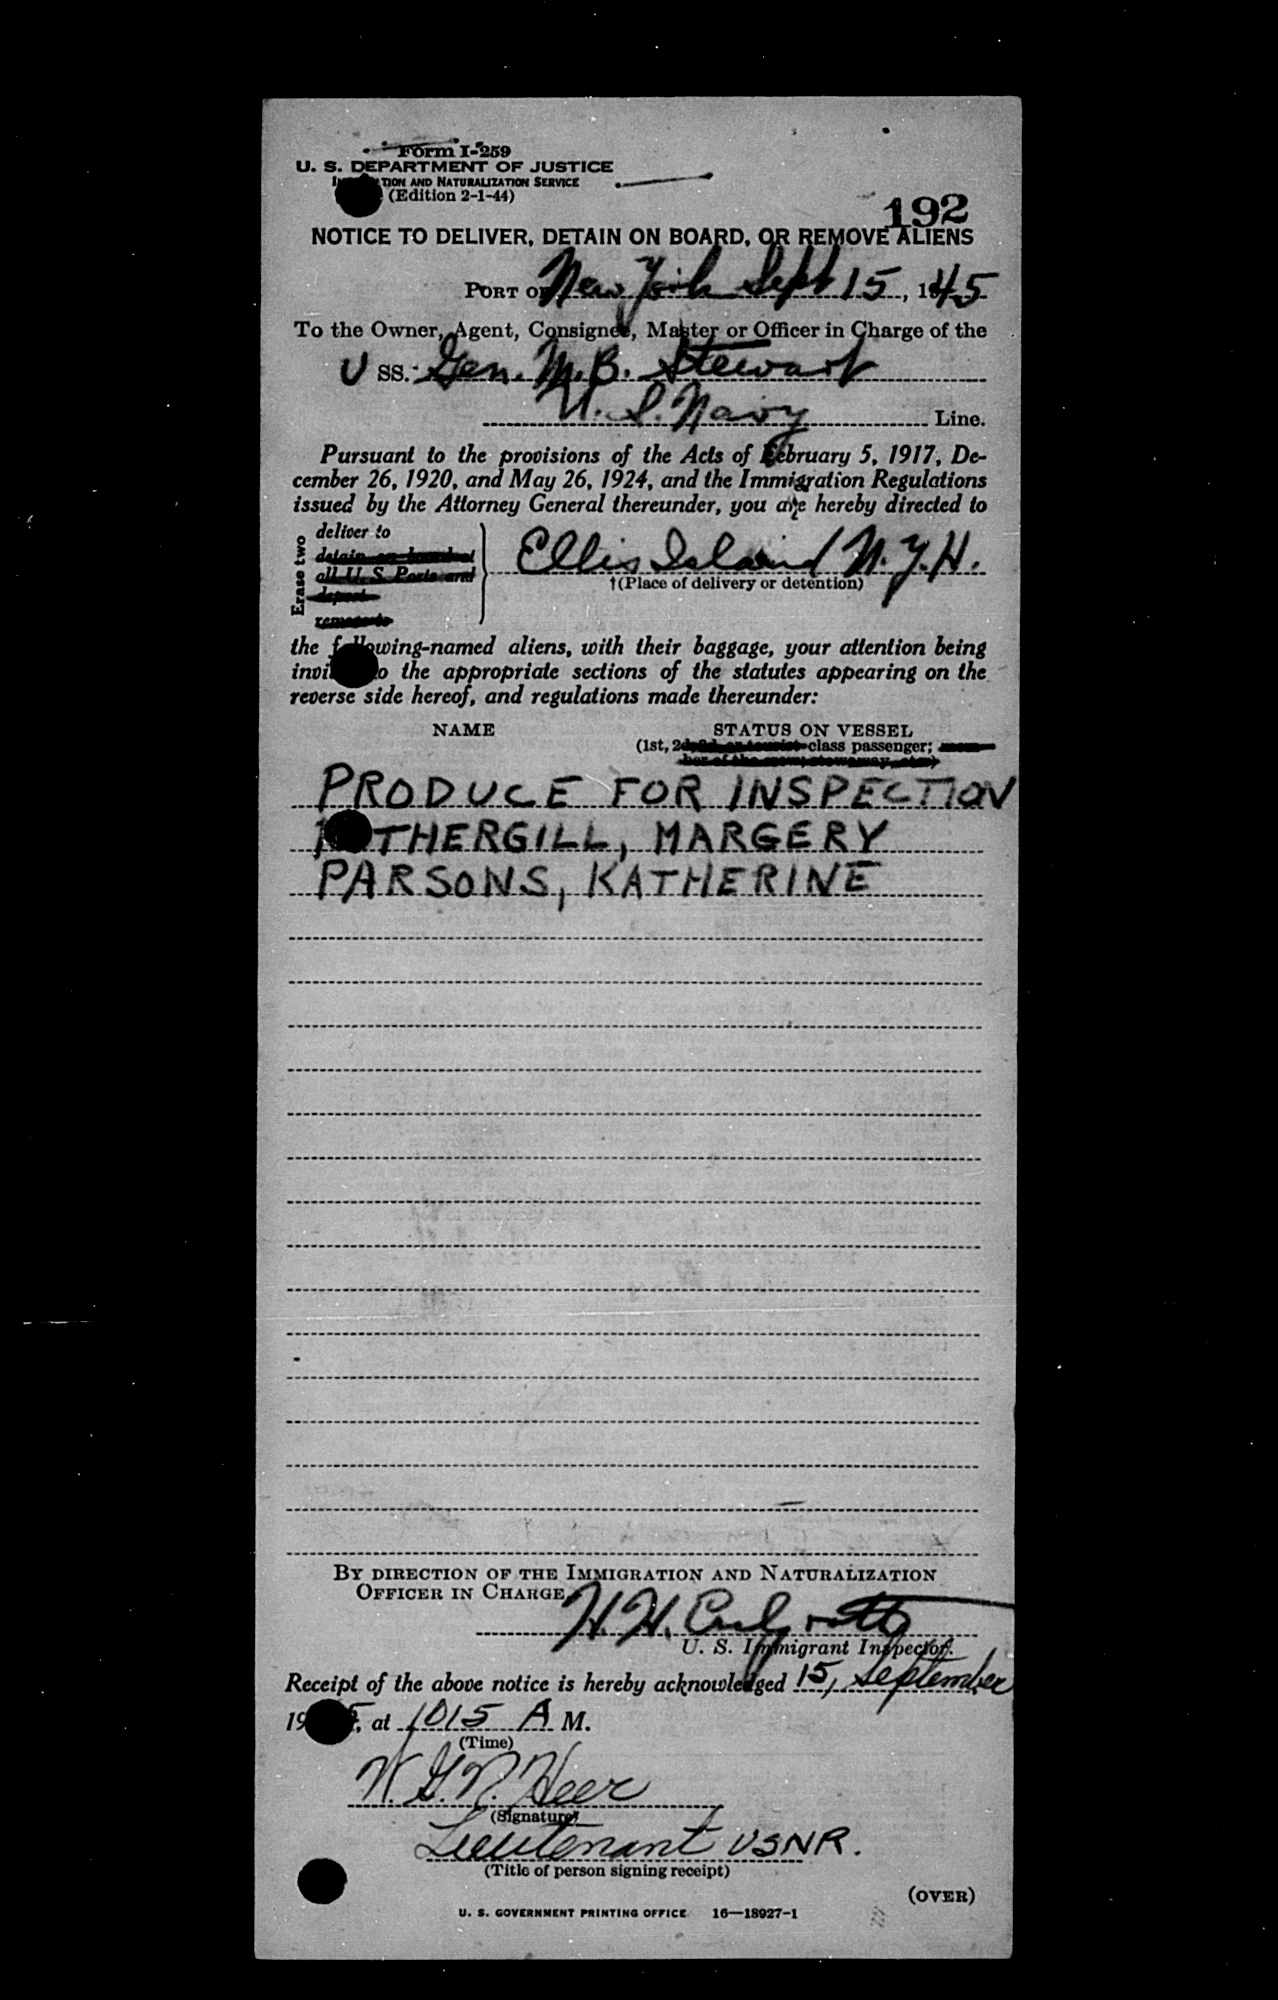 Form I-259
U. S. DEPARTMENT OF JUSTICE
TION AND NATURALIZATION SERVICE
(Edition 2-1-44)
192
NOTICE TO DELIVER, DETAIN ON BOARD, OR REMOVE ALIENS
PORT OF New York Sept 15, 1945
To the Owner, Agent, Consignee, Master or Officer in Charge of the
U SS. Gen. M. B. Stewart
U. S. Navy Line.
Pursuant to the provisions of the Acts of February 5, 1917, De-
cember 26, 1920, and May 26, 1924, and the Immigration Regulations
issued by the Attorney General thereunder, you are hereby directed to
Erase two
deliver to
detain on board at
all U. S. Ports and
deport
remove to
Ellis Island N.Y.H.
†(Place of delivery or detention)
the following-named aliens, with their baggage, your attention being
invi to the appropriate sections of the statutes appearing on the
reverse side hereof, and regulations made thereunder:
NAME STATUS ON VESSEL
(1st, 2d, 3d, or tourist-class passenger; mem-
ber of the crew, stowaway, etc.)
PRODUCE FOR INSPECTION
THERGILL, MARGERY
PARSONS, KATHERINE
BY DIRECTION OF THE IMMIGRATION AND NATURALIZATION
OFFICER IN CHARGE,
H. H.
U. S. Immigrant Inspector.
Receipt of the above notice is hereby acknowledged 15, September
19 5, at 1015 A M.
(Time)
W. G. N. Heer
(Signature)
Lieutenant USNR.
(Title of person signing receipt)
(OVER)
U. S. GOVERNMENT PRINTING OFFICE 16—18927-1